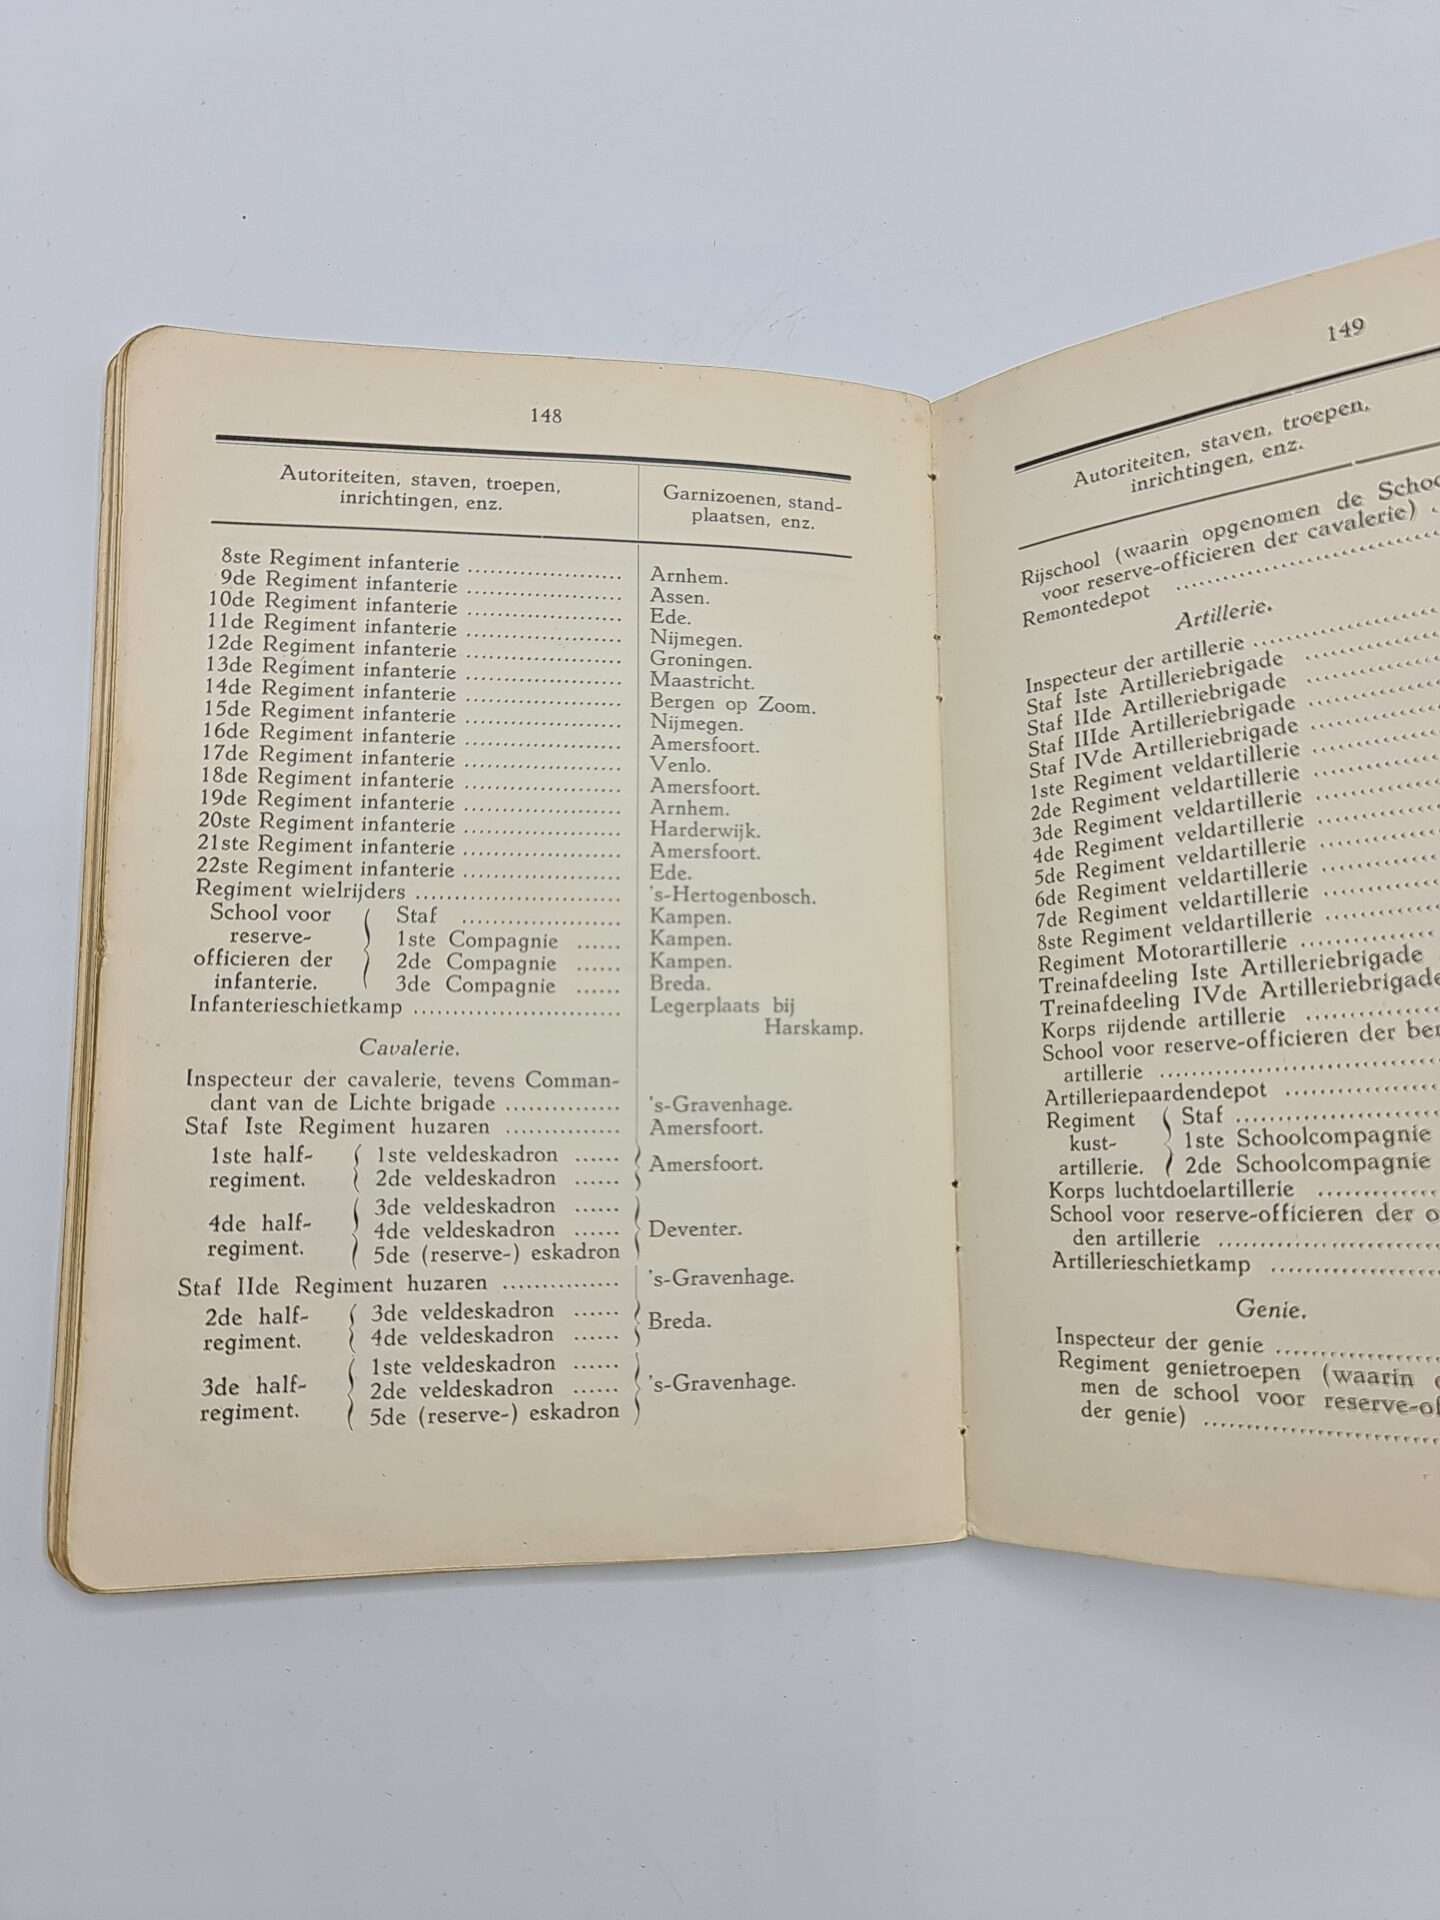 148
Autoriteiten, staven, troepen, inrichtingen, enz.
Garnizoenen, stand-
plaatsen, enz.
8ste Regiment infanterie ...................... Arnhem.
9de Regiment infanterie ...................... Assen.
10de Regiment infanterie ...................... Ede.
11de Regiment infanterie ...................... Nijmegen.
12de Regiment infanterie ...................... Groningen.
13de Regiment infanterie ...................... Maastricht.
14de Regiment infanterie ...................... Bergen op Zoom.
15de Regiment infanterie ...................... Nijmegen.
16de Regiment infanterie ...................... Amersfoort.
17de Regiment infanterie ...................... Venlo.
18de Regiment infanterie ...................... Amersfoort.
19de Regiment infanterie ...................... Arnhem.
20ste Regiment infanterie ...................... Harderwijk.
21ste Regiment infanterie ...................... Amersfoort.
22ste Regiment infanterie ...................... Ede.
Regiment wielrijders ............................ 's-Hertogenbosch.
School voor
reserve-
officieren der
infanterie.
Staf ...................... Kampen.
1ste Compagnie ...... Kampen.
2de Compagnie ...... Kampen.
3de Compagnie ...... Breda.
Infanterieschietkamp ............................ Legerplaats bij
Harskamp.
Cavalerie.
Inspecteur der cavalerie, tevens Comman-
dant van de Lichte brigade ............... 's-Gravenhage.
Staf Iste Regiment huzaren ............... Amersfoort.
1ste half-
regiment.
1ste veldeskadron ......
2de veldeskadron ......
Amersfoort.
4de half-
regiment.
3de veldeskadron ......
4de veldeskadron ......
5de (reserve-) eskadron
Deventer.
Staf IIde Regiment huzaren ............... 's-Gravenhage.
2de half-
regiment.
3de veldeskadron ......
4de veldeskadron ......
Breda.
3de half-
regiment.
1ste veldeskadron ......
2de veldeskadron ......
5de (reserve-) eskadron
's-Gravenhage.
149
Autoriteiten, staven, troepen,
inrichtingen, enz.
Rijschool (waarin opgenomen de
voor reserve-officieren der cavalerie) ..
Remontedepot ..............................
Artillerie.
Inspecteur der artillerie ......................
Staf Iste Artilleriebrigade ..................
Staf IIde Artilleriebrigade ..................
Staf IIIde Artilleriebrigade ..................
Staf IVde Artilleriebrigade ..................
1ste Regiment veldartillerie ..................
2de Regiment veldartillerie ..................
3de Regiment veldartillerie ..................
4de Regiment veldartillerie ..................
5de Regiment veldartillerie ..................
6de Regiment veldartillerie ..................
7de Regiment veldartillerie ..................
8ste Regiment veldartillerie ..................
Regiment Motorartillerie ..................
Treinafdeeling Iste Artilleriebrigade
Treinafdeeling IVde Artilleriebrigade
Korps rijdende artillerie ..................
School voor reserve-officieren der
artillerie ..............................
Artilleriepaardendepot ..................
Regiment
kust-
artillerie.
Staf ......................
1ste Schoolcompagnie
2de Schoolcompagnie
Korps luchtdoelartillerie ..................
School voor reserve-officieren der
den artillerie ......................
Artillerieschietkamp ..................
Genie.
Inspecteur der genie ......................
Regiment genietroepen (waarin
men de school voor
der genie) ..............................